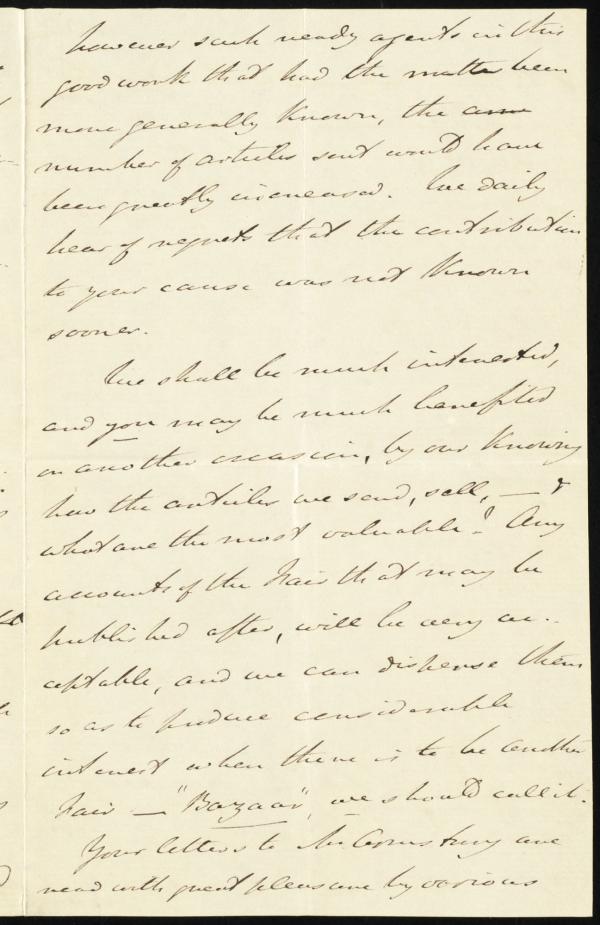 however such ready agents in this
good work that had the matter been
more generally known, the
number of articles sent would have
been greatly increased. We daily
hear of regrets that the contribution
to your cause was not known
sooner.
We shall be much interested,
and you may be much benefited
on another occasion, by our knowing
how the articles we send, sell, — &
what are the most valuable! Any
accounts of the Fair that may be
published after, will be very ac-
ceptable, and we can dispense them
so as to produce considerable
interest when there is to be another
Fair — "Bazaar", we should call it.
Your letters to Mr Armstrong are
read with great pleasure by various